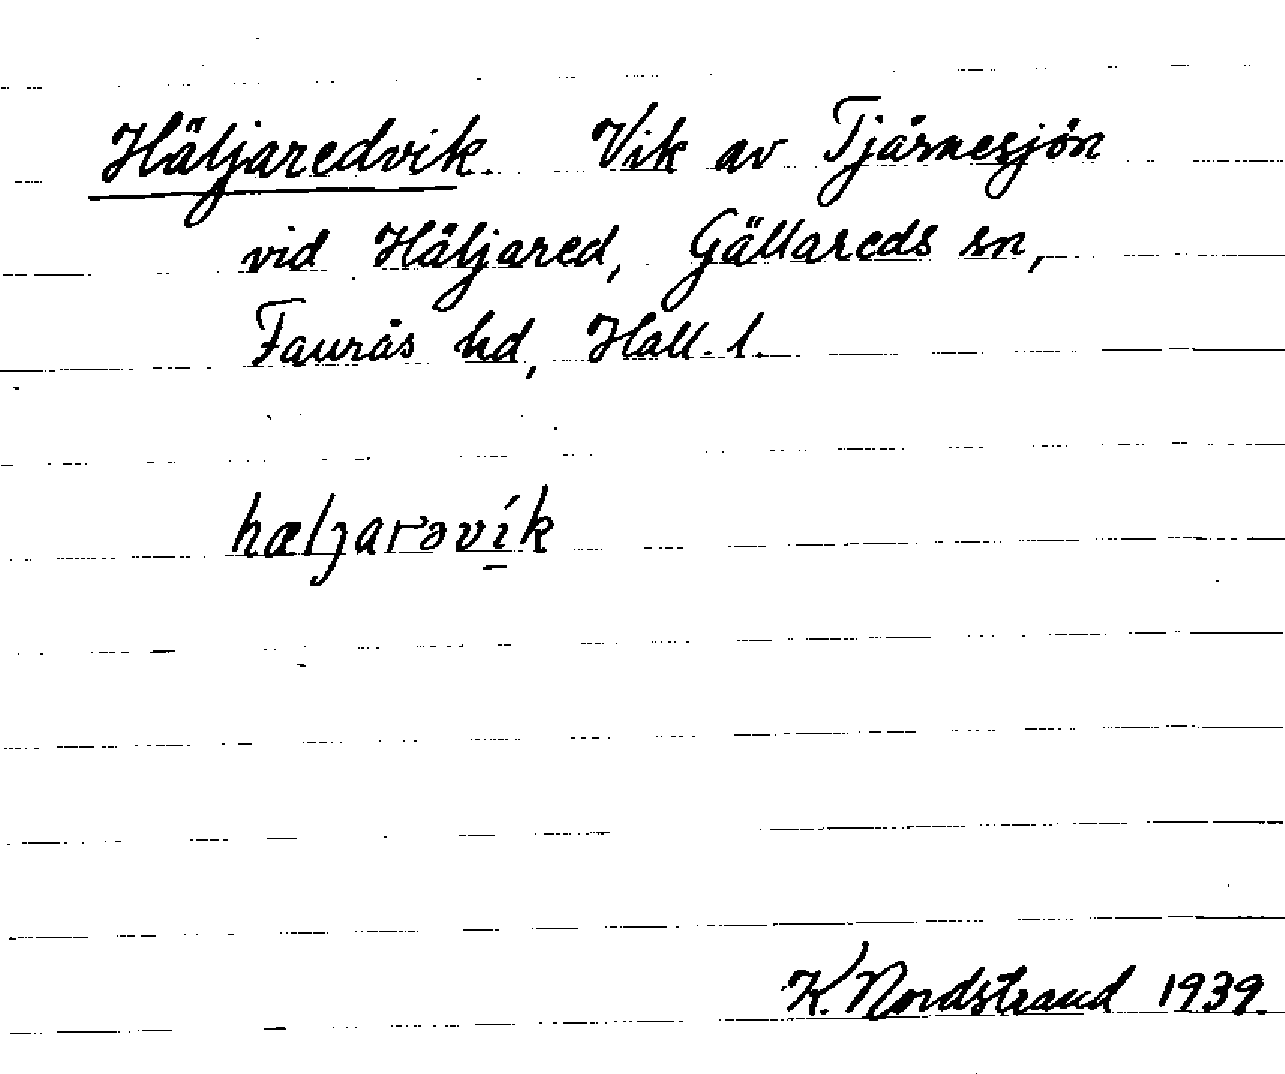 Häljaredvik. Vik av Tjärnesjön
vid Häljared, Gällareds sn,
Faurås hd, Hall. l.
hælȷarəvík
K. Nordstrand 1939.